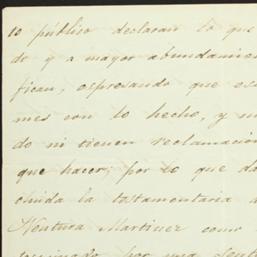 to público declaran lo que
do y a mayor abundamien
fican, espresando que es
mes con lo hecho, y
do ni tienen reclamacion
que hacer; por lo que da
cluida la testamentaria d
Ventura Martinez como
por una